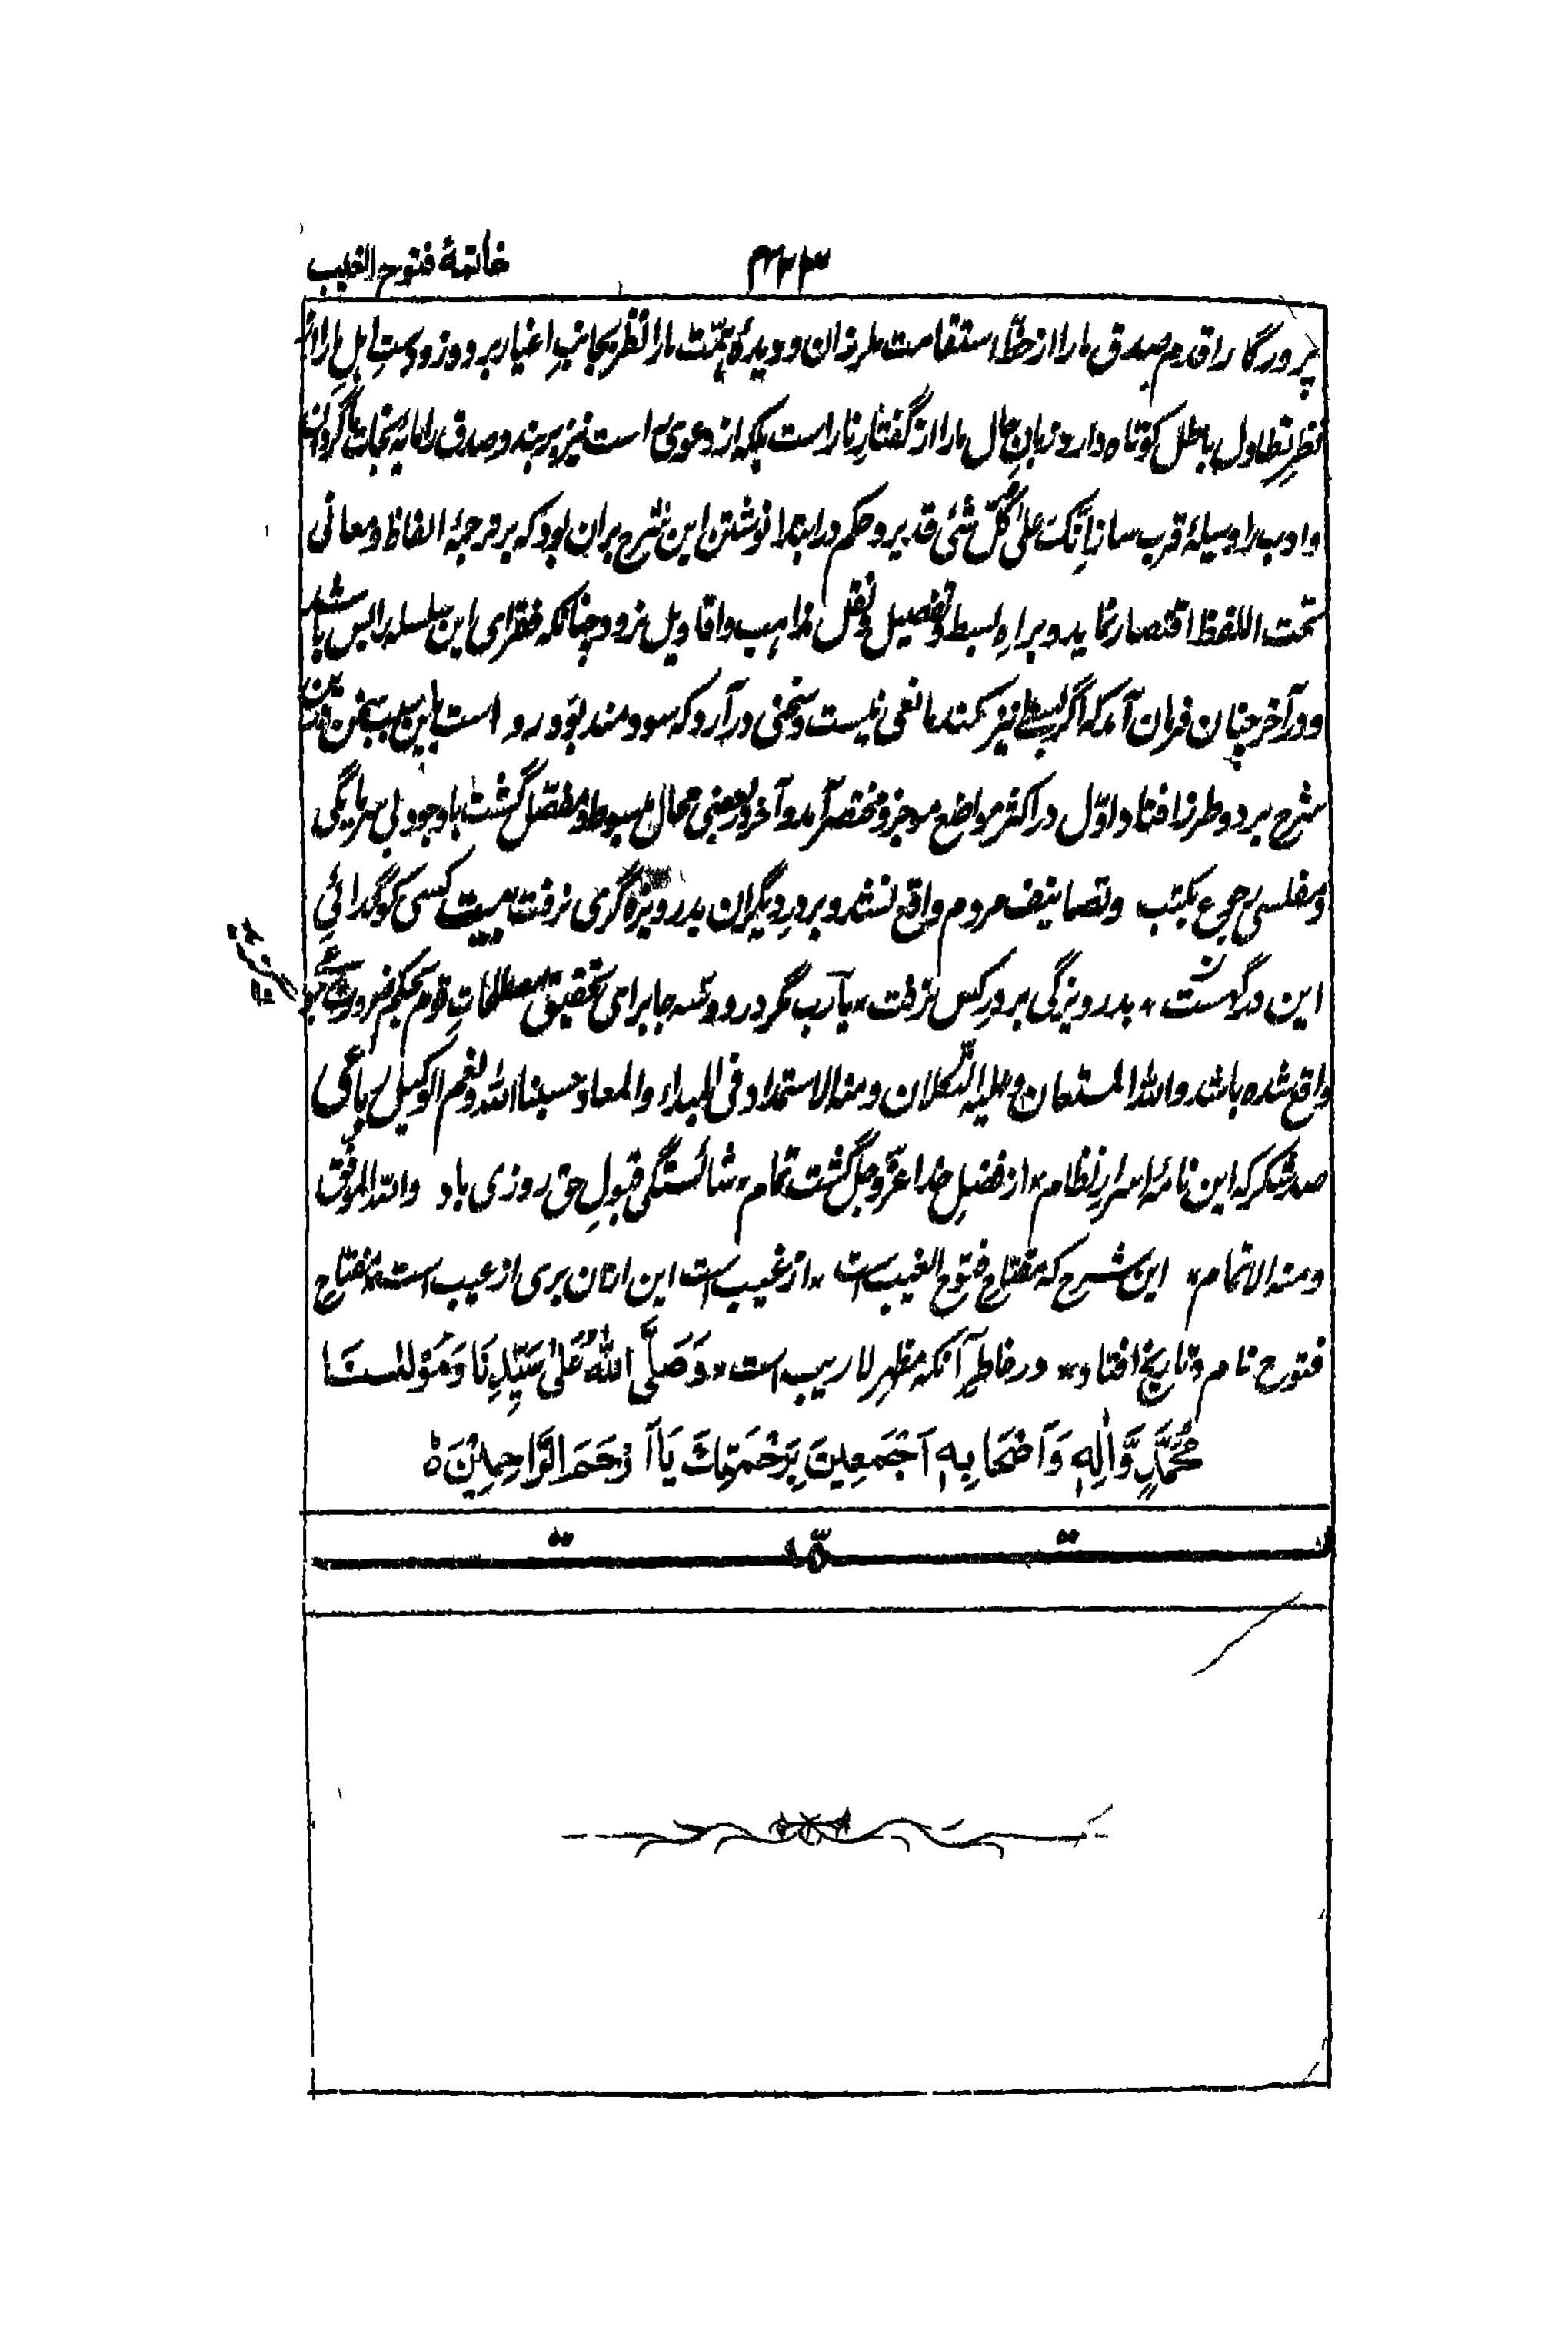 خاتمهٔ فتوح الغیب
پرورگارا قدم صدق مارا از خطِّ استقامت ملرزان و دیدهٔ همّت مارا نظر بجانبِ اغیار بردوز و دستِ اهلِ را از
نظرِ تطاول باطل کوتاه دار و زبانِ حال مارا از گفتارِ ناراست بلکه از دعویٔ است نیز بربند و صدق را مایهٔ نجات ما گردان
و ادب را وسیلهٔ قرب ساز اِنَّک عَلیٰ کُلِّ شَیٔ قدیر و حکم در ابتدا نوشتن این شرح بران بود که بر ترجمهٔ الفاظ و معانی
تحت اللفظ اقتصار نماید و براهِ بسط و تفصیل و نقل مذاهب و اقاویل نرود چنانکه فقرای این سلسله را بس باشد
و در آخر چنان فرمان آمد که اگر بسطی نیز کند مانعی نیست و سخنی در آرد که سودمند بوَد رو است باین سبب سخن درین
شرح بر دو طرز افتاد اوّل در اکثر مواضع موجز و مختصر آمد و آخر در بعضی محال مبسوط و مفصّل گشت با وجود بی سرمایگی
و مفلسی رجوع بکتب و تصانیف مردم واقع نشد و بر درِ دیگران بدریوزه گری نرفت بیت کسی کو گدائیِ
این درگهست * بدریوزگی بر درِ کس نرفت * یارب مگر در دو سه جا برای تحقیق مصطلحاتِ قوم بحکم ضرورت
واقع شده باشد واللّٰه المستعان و علیه التّکلان و منه الاستمداد فی المبداء والمعاد حسبنا اللّٰه و نعم الوکیل رباعی
صد شکر که این نامهٔ اسرار نظام * از فضلِ خدا عزّ و جل گشت تمام * شائستگی قبولِ حق روزی باد واللّٰه الموفّق
و منه الاتمام * این شرح که مفتاح فتوح الغیب است * از غیب است این ازان بری از عیب است * مفتاح
فتوح نام و تاریخ افتاد * در خاطرِ آنکه مظهر لاریب است * وَصَلَّی اللّٰهُ عَلیٰ سَیِّدِنَا وَمَوْلٰنَا
مُحَمَّدٍ وَّاٰلِهٖ وَاَصْحَابِهٖ اَجْمَعِیْنَ بِرَحْمَتِكَ یَا اَرْحَمَ الرَّاحِمِیْنَ ہ
تمّت